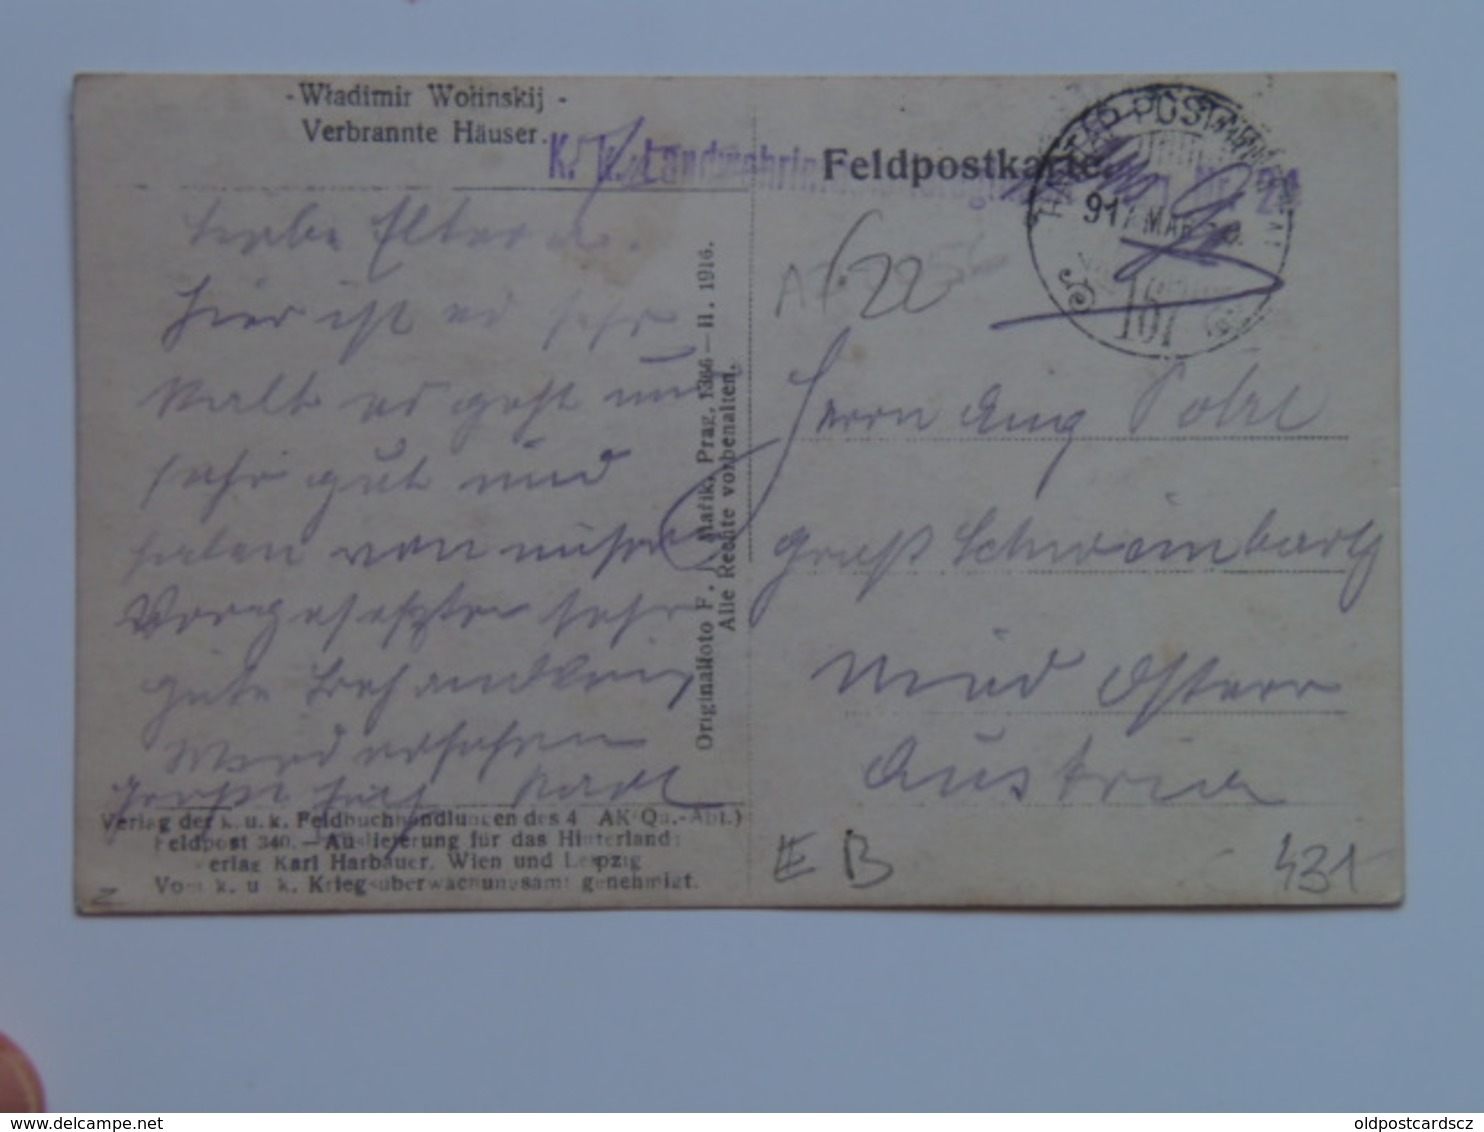 -Władimir Wołinskij -
Verbrannte Häuser.
K. k. Landwehrin
Feldpostkarte.
Nr. 21
917 MAR
167
Liebe Eltern.
Hier ist es sehr
kalt es geht mir
sehr gut und
haben von unsern
Vorgesetzten sehr
gute Behandlung
Grüßt Euch Karl
Originalfoto F. J. Mařik, Prag, 1366—II. 1916.
Alle Rechte vorbehalten.
22
Herrn Aug
Groß Schweinbarth
Nied Österr
Austria
Verlag der k. u. k. Feldbuchhandlungen des 4 AK(Qu.-Abt.)
Feldpost 340.—Auslieferung für das Hinterland:
Verlag Karl Harbauer, Wien und Leipzig
Vom k. u. k. Kriegsüberwachungsamt genehmigt.
E B
431
z
delcampe.net
oldpostcardscz